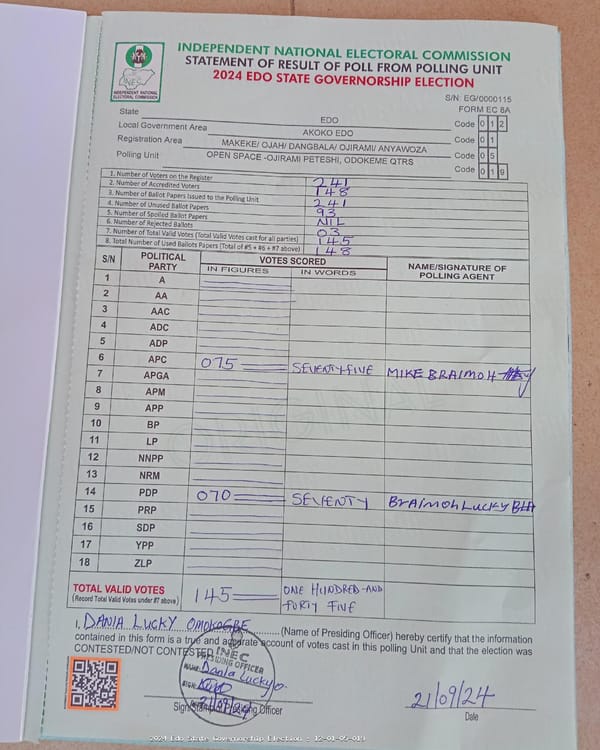 INDEPENDENT NATIONAL ELECTORAL COMMISSION
STATEMENT OF RESULT OF POLL FROM POLLING UNIT
2024 EDO STATE GOVERNORSHIP ELECTION
INDEPENDENT NATIONAL
ELECTORAL COMMISSION
S/N: EG/0000115
FORM EC 8A
State EDO Code 0 1 2
Local Government Area AKOKO EDO Code 0 1
Registration Area MAKEKE/ OJAH/ DANGBALA/ OJIRAMI/ ANYAWOZA Code 0 5
Polling Unit OPEN SPACE -OJIRAMI PETESHI, ODOKEME QTRS Code 0 1 9
1. Number of Voters on the Register 241
2. Number of Accredited Voters 148
3. Number of Ballot Papers Issued to the Polling Unit 241
4. Number of Unused Ballot Papers 93
5. Number of Spoiled Ballot Papers NIL
6. Number of Rejected Ballots 03
7. Number of Total Valid Votes (Total Valid Votes cast for all parties) 145
8. Total Number of Used Ballots Papers (Total of #5 + #6 + #7 above) 148
S/N POLITICAL PARTY VOTES SCORED NAME/SIGNATURE OF POLLING AGENT
IN FIGURES IN WORDS
1 A
2 AA
3 AAC
4 ADC
5 ADP
6 APC 075 SEVENTY FIVE MIKE BRAIMOH
7 APGA
8 APM
9 APP
10 BP
11 LP
12 NNPP
13 NRM
14 PDP 070 SEVENTY BRAIMOH LUCKY
15 PRP
16 SDP
17 YPP
18 ZLP
TOTAL VALID VOTES 145 ONE HUNDRED AND
(Record Total Valid Votes under #7 above) FORTY FIVE
I, DANIA LUCKY OMOKOGBE (Name of Presiding Officer) hereby certify that the information
contained in this form is a true and accurate account of votes cast in this polling Unit and that the election was
CONTESTED/NOT CONTESTED
INEC
PRESIDING OFFICER
NAME: Dania Lucky O.
SIGN:
21/09/24
21/09/24
Officer
Date
2024 Edo State Governorship Election : 12-01-05-019